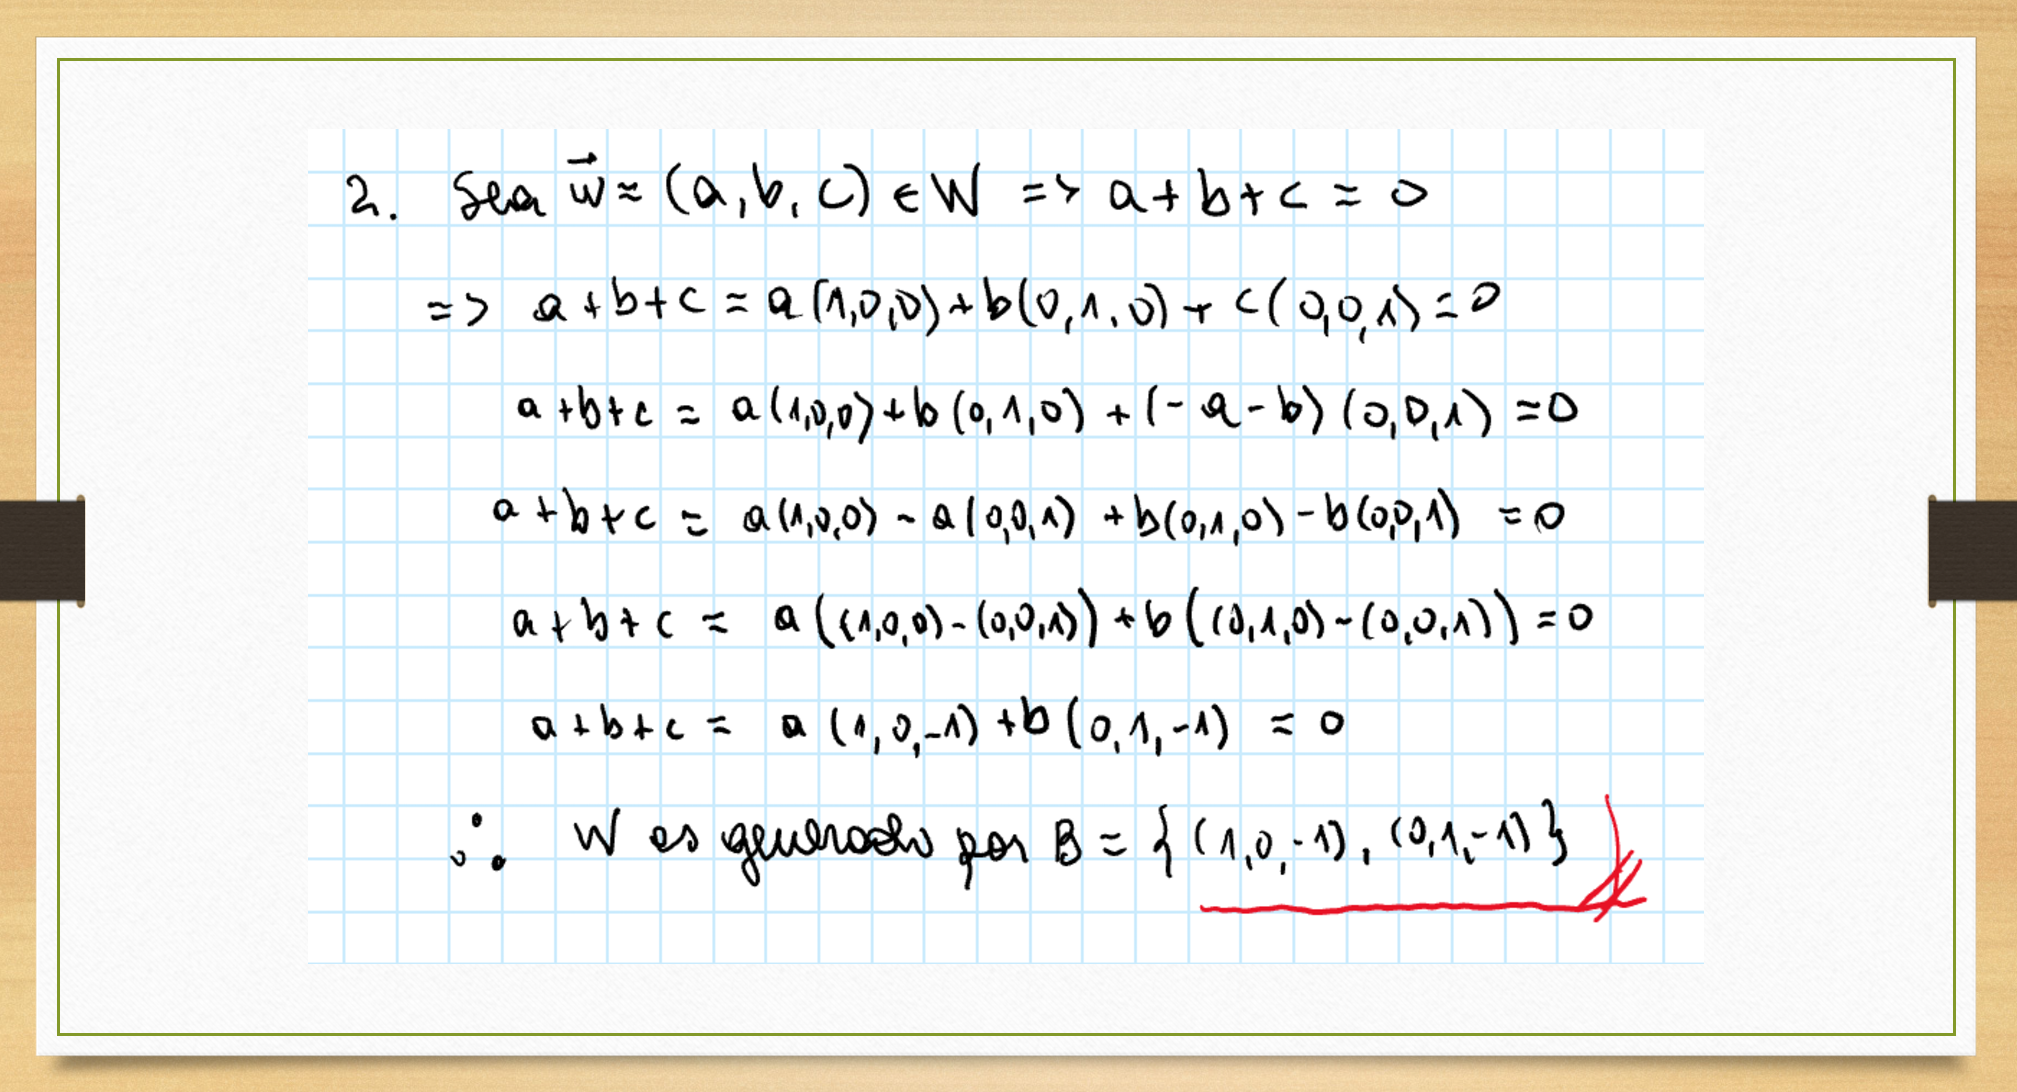 2. Sea w⃗ = (a, b, c) ∈ W => a + b + c = 0
=> a + b + c = a(1,0,0) + b(0,1,0) + c(0,0,1) = 0
a + b + c = a(1,0,0) + b(0,1,0) + (-a-b)(0,0,1) = 0
a + b + c = a(1,0,0) - a(0,0,1) + b(0,1,0) - b(0,0,1) = 0
a + b + c = a((1,0,0) - (0,0,1)) + b((0,1,0) - (0,0,1)) = 0
a + b + c = a(1,0,-1) + b(0,1,-1) = 0
∴ W es generado por B = {(1,0,-1), (0,1,-1)}